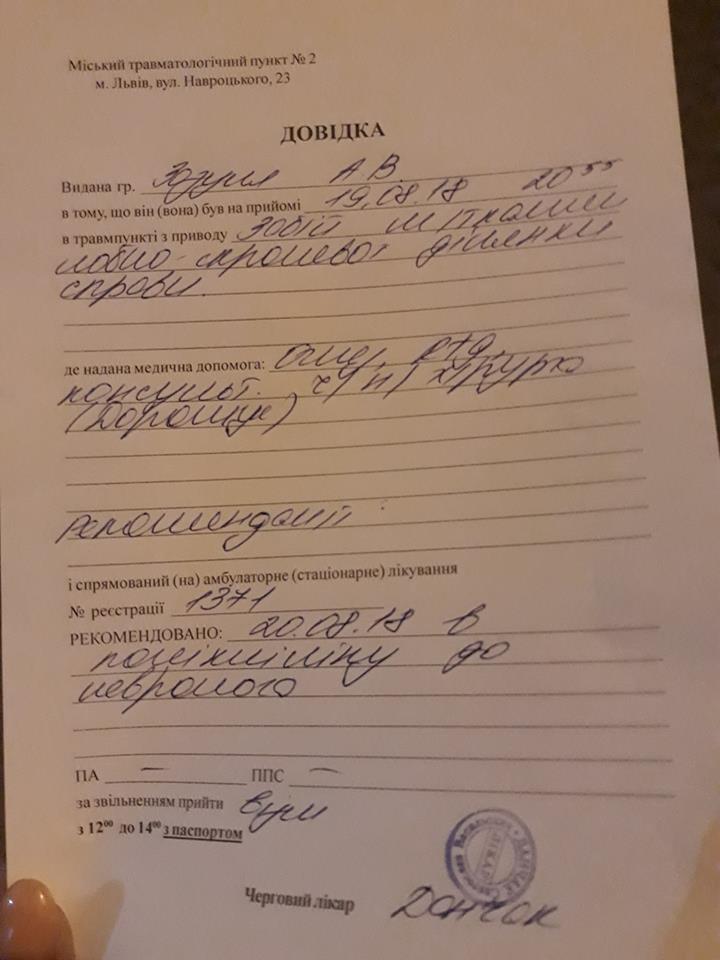 Міський травматологічний пункт № 2
м. Львів, вул. Навроцького, 23
ДОВІДКА
Видана гр. А.В.
в тому, що він (вона) був на прийомі 19,08.18 20 55
в травмпункті з приводу Забій м/тканин
лобно-скроневої ділянки
справи.
де надана медична допомога: огляд, ртg,
консульт. ч/н) хірурга
(Дорощук)
Рекомендації :
і спрямований (на) амбулаторне (стаціонарне) лікування
№ реєстрації 1371
РЕКОМЕНДОВАНО: 20.08.18 в
поліклініку до
невролога
ПА — ППС —
за звільненням прийти
з 12⁰⁰ до 14⁰⁰ з паспортом
ЛІКАР
Черговий лікар Данчак